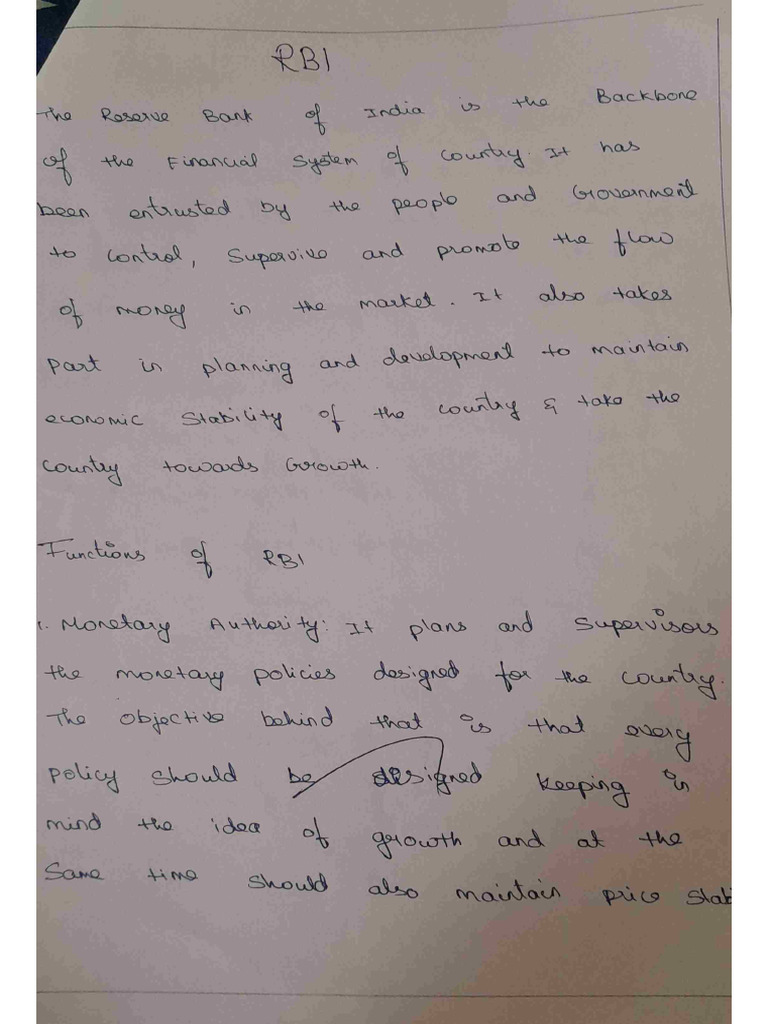 RBI
The Reserve Bank of India is the Backbone
of the Financial System of country. It has
been entrusted by the people and Government
to control, Supervive and promote the flow
of money in the market. It also takes
part in planning and development to maintain
economic Stability of the country & take the
country towards Growth.
Functions of RBI
1. Monetary Authority: It plans and Supervisors
the monetary policies designed for the country.
The objective behind that is that every
policy should be designed keeping in
mind the idea of growth and at the
Same time should also maintain price Stab